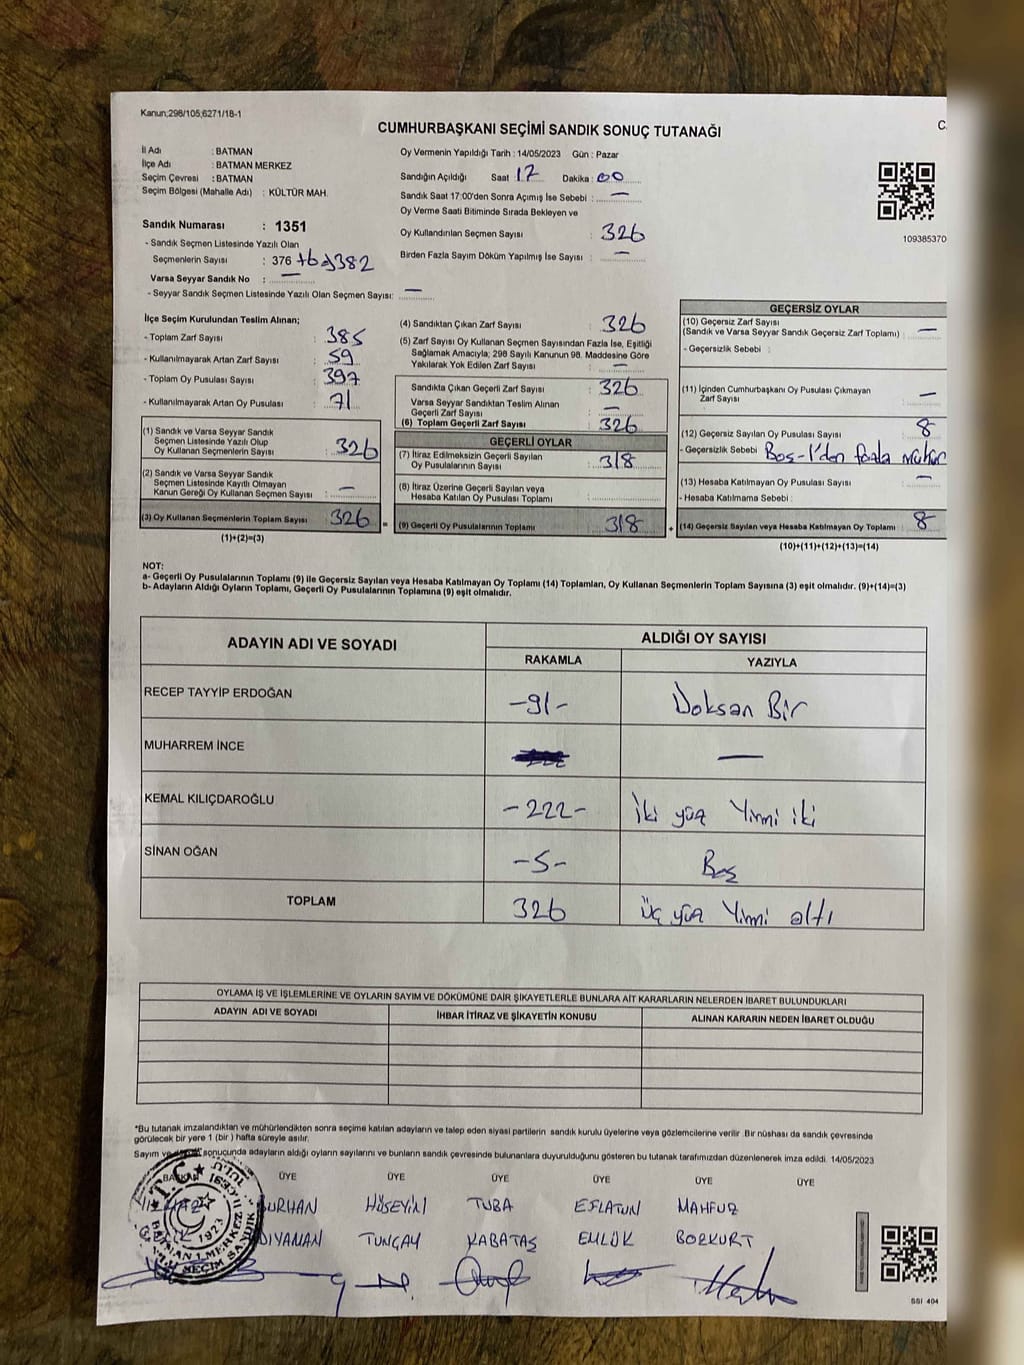 Kanun;298/105,6271/18-1
CUMHURBAŞKANI SEÇİMİ SANDIK SONUÇ TUTANAĞI
C.
İl Adı : BATMAN
İlçe Adı : BATMAN MERKEZ
Seçim Çevresi : BATMAN
Seçim Bölgesi (Mahalle Adı) : KÜLTÜR MAH.
Oy Vermenin Yapıldığı Tarih : 14/05/2023 Gün : Pazar
Sandığın Açıldığı Saat 17 Dakika : 00
Sandık Saat 17:00'den Sonra Açımış İse Sebebi : —
Oy Verme Saati Bitiminde Sırada Bekleyen ve
Oy Kullandırılan Seçmen Sayısı : 326
Birden Fazla Sayım Döküm Yapılmış İse Sayısı : —
109385370
Sandık Numarası : 1351
- Sandık Seçmen Listesinde Yazılı Olan
Seçmenlerin Sayısı : 376 +6 382
Varsa Seyyar Sandık No : —
- Seyyar Sandık Seçmen Listesinde Yazılı Olan Seçmen Sayısı: —
İlçe Seçim Kurulundan Teslim Alınan;
- Toplam Zarf Sayısı : 385
- Kullanılmayarak Artan Zarf Sayısı : 59
- Toplam Oy Pusulası Sayısı : 397
- Kullanılmayarak Artan Oy Pusulası : 71
(1) Sandık ve Varsa Seyyar Sandık
Seçmen Listesinde Yazılı Olup
Oy Kullanan Seçmenlerin Sayısı : 326
(2) Sandık ve Varsa Seyyar Sandık
Seçmen Listesinde Kayıtlı Olmayan
Kanun Gereği Oy Kullanan Seçmen Sayısı : —
(3) Oy Kullanan Seçmenlerin Toplam Sayısı 326 =
(1)+(2)=(3)
(4) Sandıktan Çıkan Zarf Sayısı : 326
(5) Zarf Sayısı Oy Kullanan Seçmen Sayısından Fazla İse, Eşitliği
Sağlamak Amacıyla; 298 Sayılı Kanunun 98. Maddesine Göre
Yakılarak Yok Edilen Zarf Sayısı : —
Sandıkta Çıkan Geçerli Zarf Sayısı : 326
Varsa Seyyar Sandıktan Teslim Alınan
Geçerli Zarf Sayısı : —
(6) Toplam Geçerli Zarf Sayısı : 326
GEÇERLİ OYLAR
(7) İtiraz Edilmeksizin Geçerli Sayılan
Oy Pusulalarının Sayısı : 318
(8) İtiraz Üzerine Geçerli Sayılan veya
Hesaba Katılan Oy Pusulası Toplamı :
(9) Geçerli Oy Pusulalarının Toplamı : 318 +
GEÇERSİZ OYLAR
(10) Geçersiz Zarf Sayısı
(Sandık ve Varsa Seyyar Sandık Geçersiz Zarf Toplamı) : —
- Geçersizlik Sebebi :
(11) İçinden Cumhurbaşkanı Oy Pusulası Çıkmayan
Zarf Sayısı : —
(12) Geçersiz Sayılan Oy Pusulası Sayısı : 8
- Geçersizlik Sebebi Boş-1'den fazla mühür
(13) Hesaba Katılmayan Oy Pusulası Sayısı : —
- Hesaba Katılmama Sebebi :
(14) Geçersiz Sayılan veya Hesaba Katılmayan Oy Toplamı : 8
(10)+(11)+(12)+(13)=(14)
NOT:
a- Geçerli Oy Pusulalarının Toplamı (9) ile Geçersiz Sayılan veya Hesaba Katılmayan Oy Toplamı (14) Toplamları, Oy Kullanan Seçmenlerin Toplam Sayısına (3) eşit olmalıdır. (9)+(14)=(3)
b- Adayların Aldığı Oyların Toplamı, Geçerli Oy Pusulalarının Toplamına (9) eşit olmalıdır.
ADAYIN ADI VE SOYADI
ALDIĞI OY SAYISI
RAKAMLA YAZIYLA
RECEP TAYYİP ERDOĞAN -91- Doksan Bir
MUHARREM İNCE —
KEMAL KILIÇDAROĞLU -222- İki yüz Yirmi iki
SİNAN OĞAN -5- Beş
TOPLAM 326 Üç yüz Yirmi altı
OYLAMA İŞ VE İŞLEMLERİNE VE OYLARIN SAYIM VE DÖKÜMÜNE DAİR ŞİKAYETLERLE BUNLARA AİT KARARLARIN NELERDEN İBARET BULUNDUKLARI
ADAYIN ADI VE SOYADI İHBAR İTİRAZ VE ŞİKAYETİN KONUSU ALINAN KARARIN NEDEN İBARET OLDUĞU
*Bu tutanak imzalandıktan ve mühürlendikten sonra seçime katılan adayların ve talep eden siyasi partilerin sandık kurulu üyelerine veya gözlemcilerine verilir .Bir nüshası da sandık çevresinde
görülecek bir yere 1 (bir ) hafta süreyle asılır.
Sayım ve sonucunda adayların aldığı oyların sayılarını ve bunların sandık çevresinde bulunanlara duyurulduğunu gösteren bu tutanak tarafımızdan düzenlenerek imza edildi. 14/05/2023
BAŞKAN ÜYE ÜYE ÜYE ÜYE ÜYE ÜYE
BURHAN HÜSEYİN TUBA EFLATUN MAHFUZ
DIYANAN TUNÇAY KABATAŞ EMLÜK BOZKURT
T.C.
1923
SSI 404